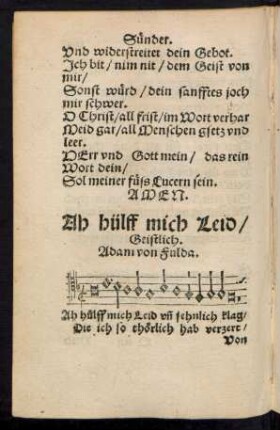 Sünder.
Vnd widerstreitet dein Gebot.
Ich bit / nim nit / dem Geist von
mir /
Sonst würd / dein sanfftes joch
mir schwer.
O Christ / all frist / im Wort verhar
Meid gar / all Menschen gsetz vnd
leer.
HErr vnd Gott mein / das rein
Wort dein /
Sol meiner füss Lucern sein.
AMEN.
Ah hülff mich Leid /
Geistlich.
Adam von Fulda.
Ah hülff mich Leid vñ sehnlich klag /
Die ich so thörlich hab verzert /
Von